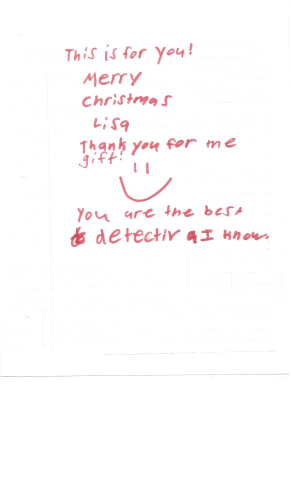 This is for you!
Merry
christmas
Lisa
Thank you for me
gift!
You are the best
detectiv I know.